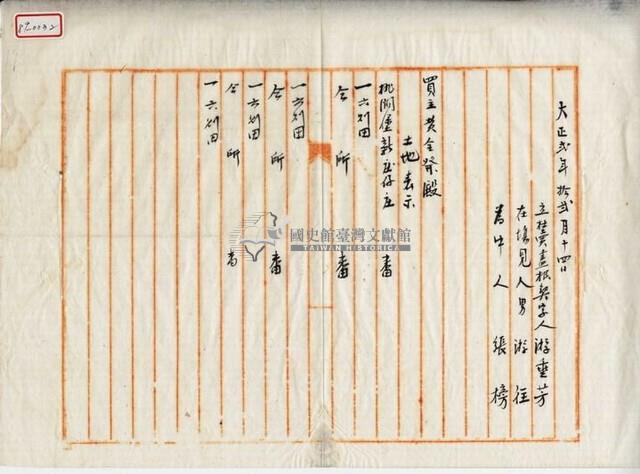 大正弍年拾弍月十四日
立杜賣盡根契字人 游垂芳
在塲見人男 游往
為中人 張榜
買主 黄全發殿
土地表示
桃澗堡新庄仔庄 番
一六則田
仝所 番
一六則田
仝所 番
一六則田
仝所 番
一六則田
國史館臺灣文獻館
TAIWAN HISTORICA